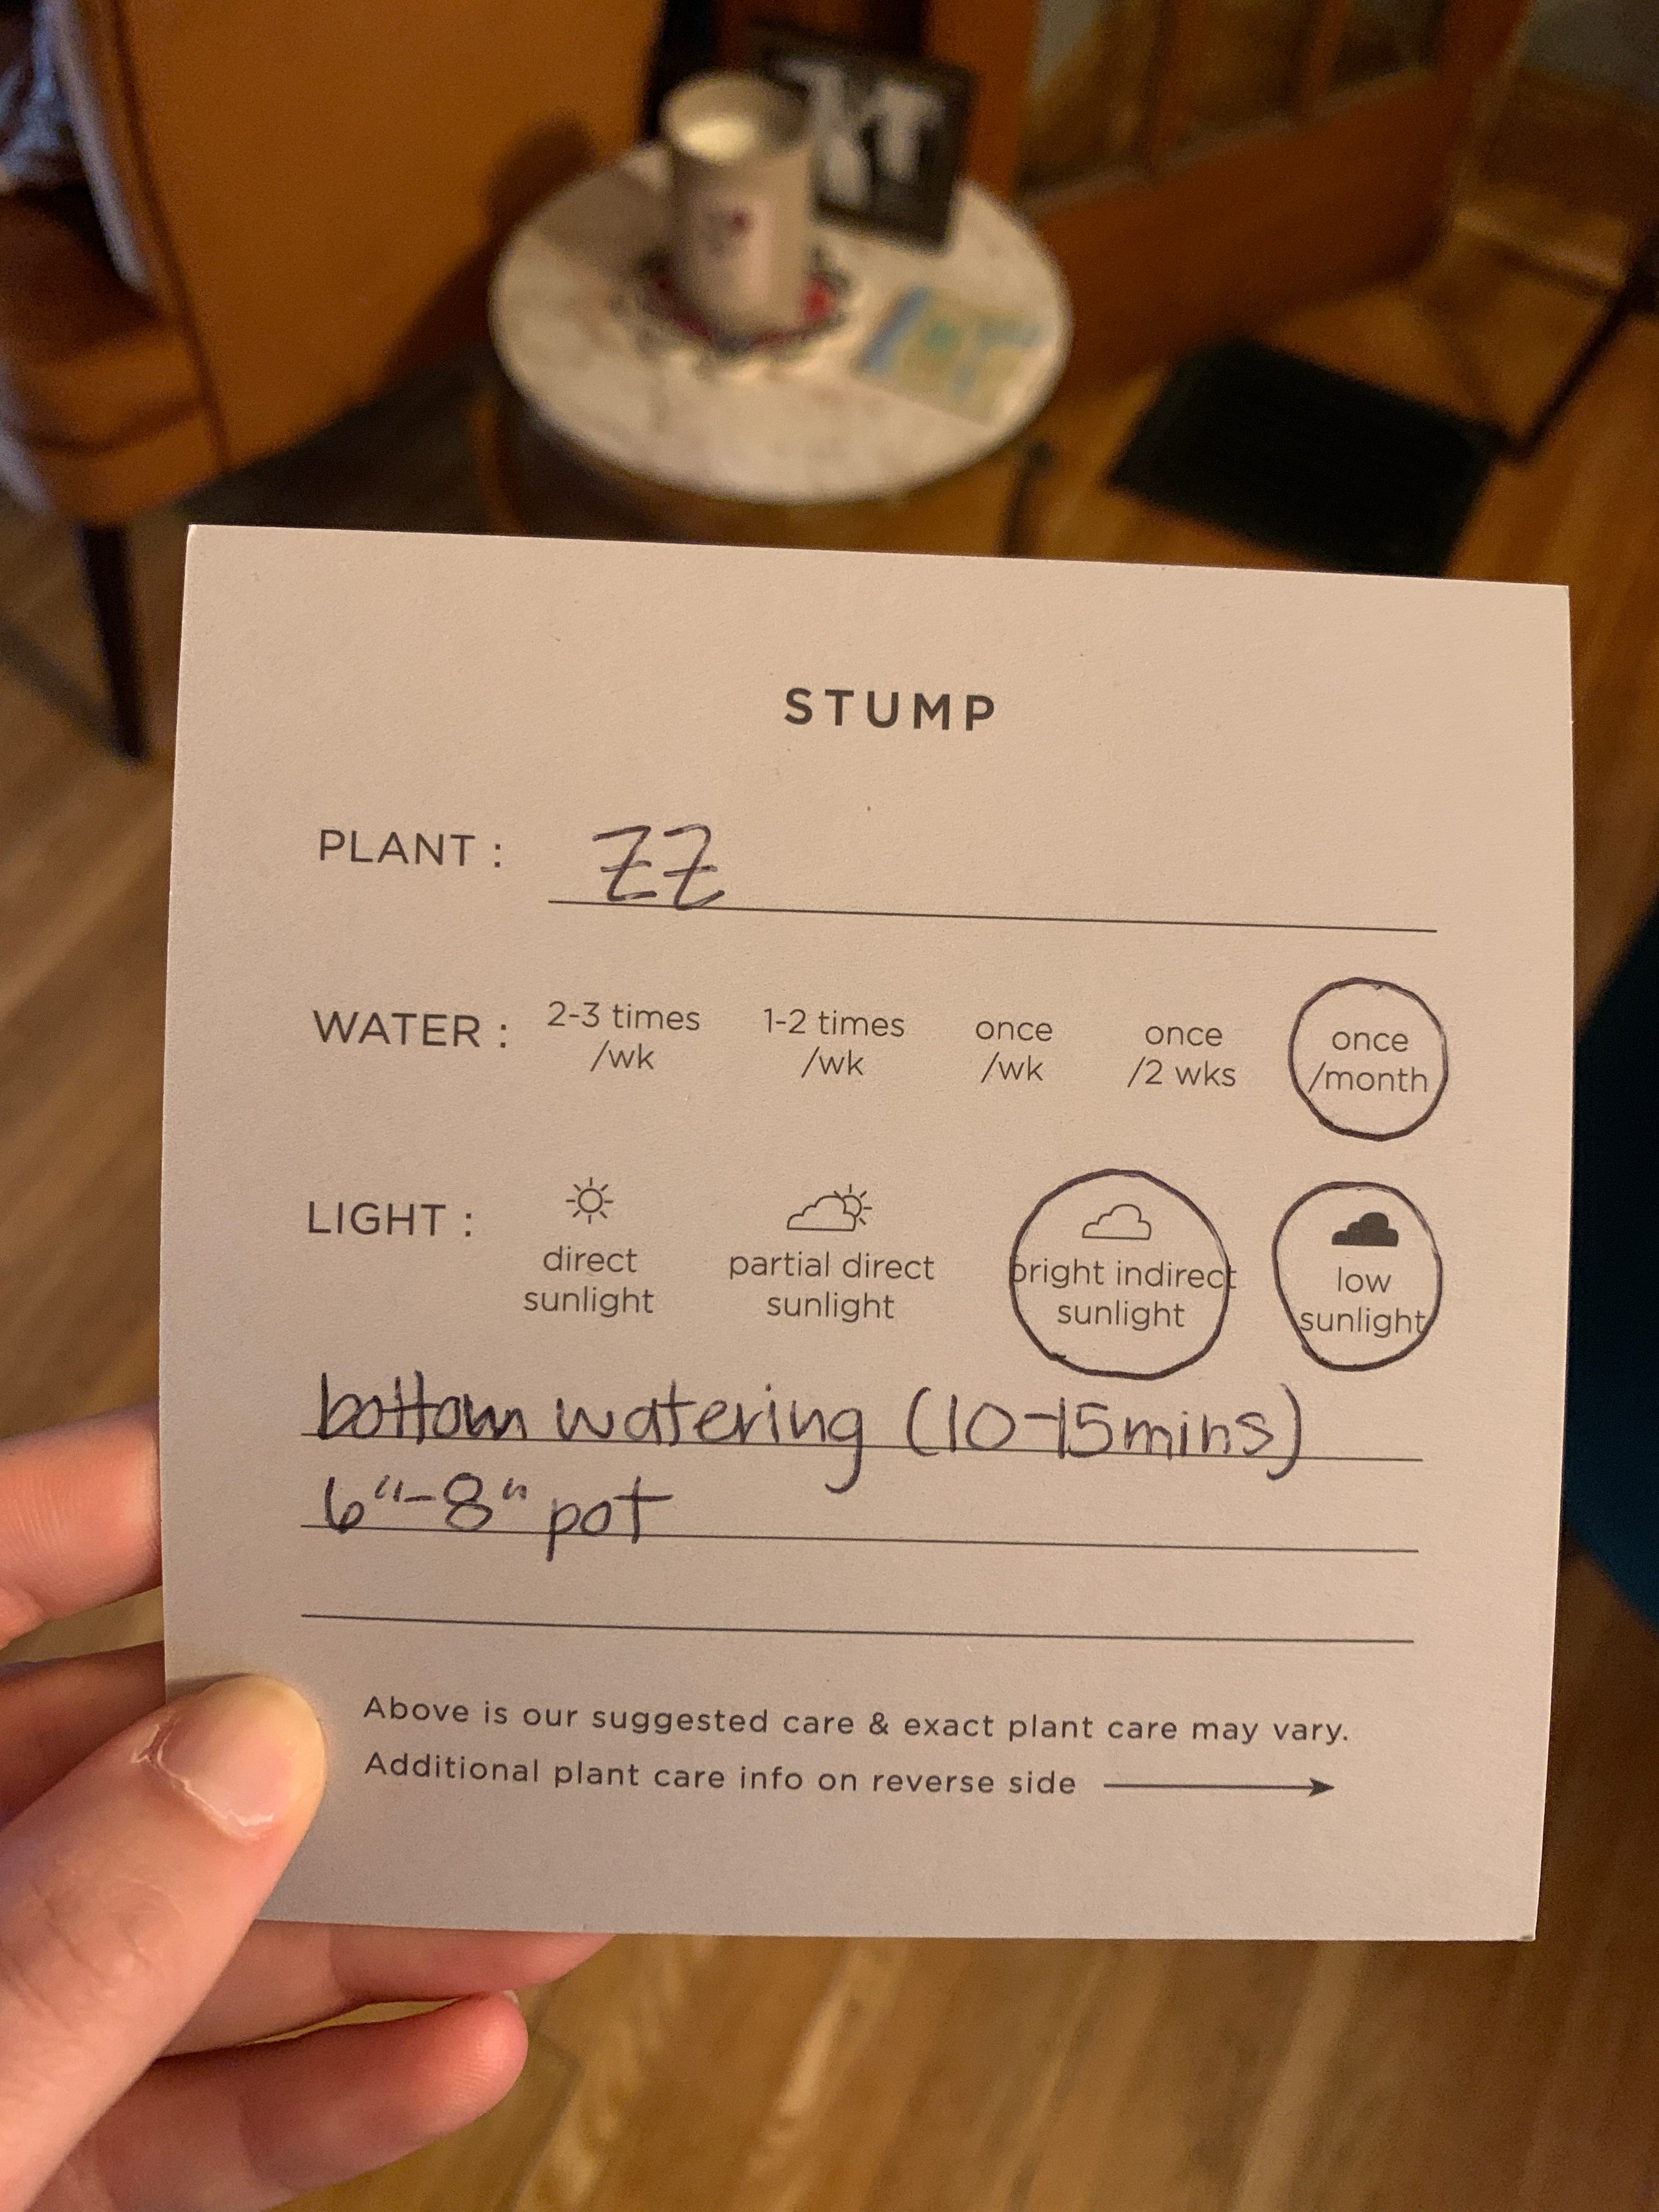 STUMP
PLANT : ZZ
WATER : 2-3 times /wk 1-2 times /wk once /wk once /2 wks once /month
LIGHT : direct sunlight partial direct sunlight bright indirect sunlight low sunlight
bottom watering (10-15mins)
6"-8" pot
Above is our suggested care & exact plant care may vary.
Additional plant care info on reverse side